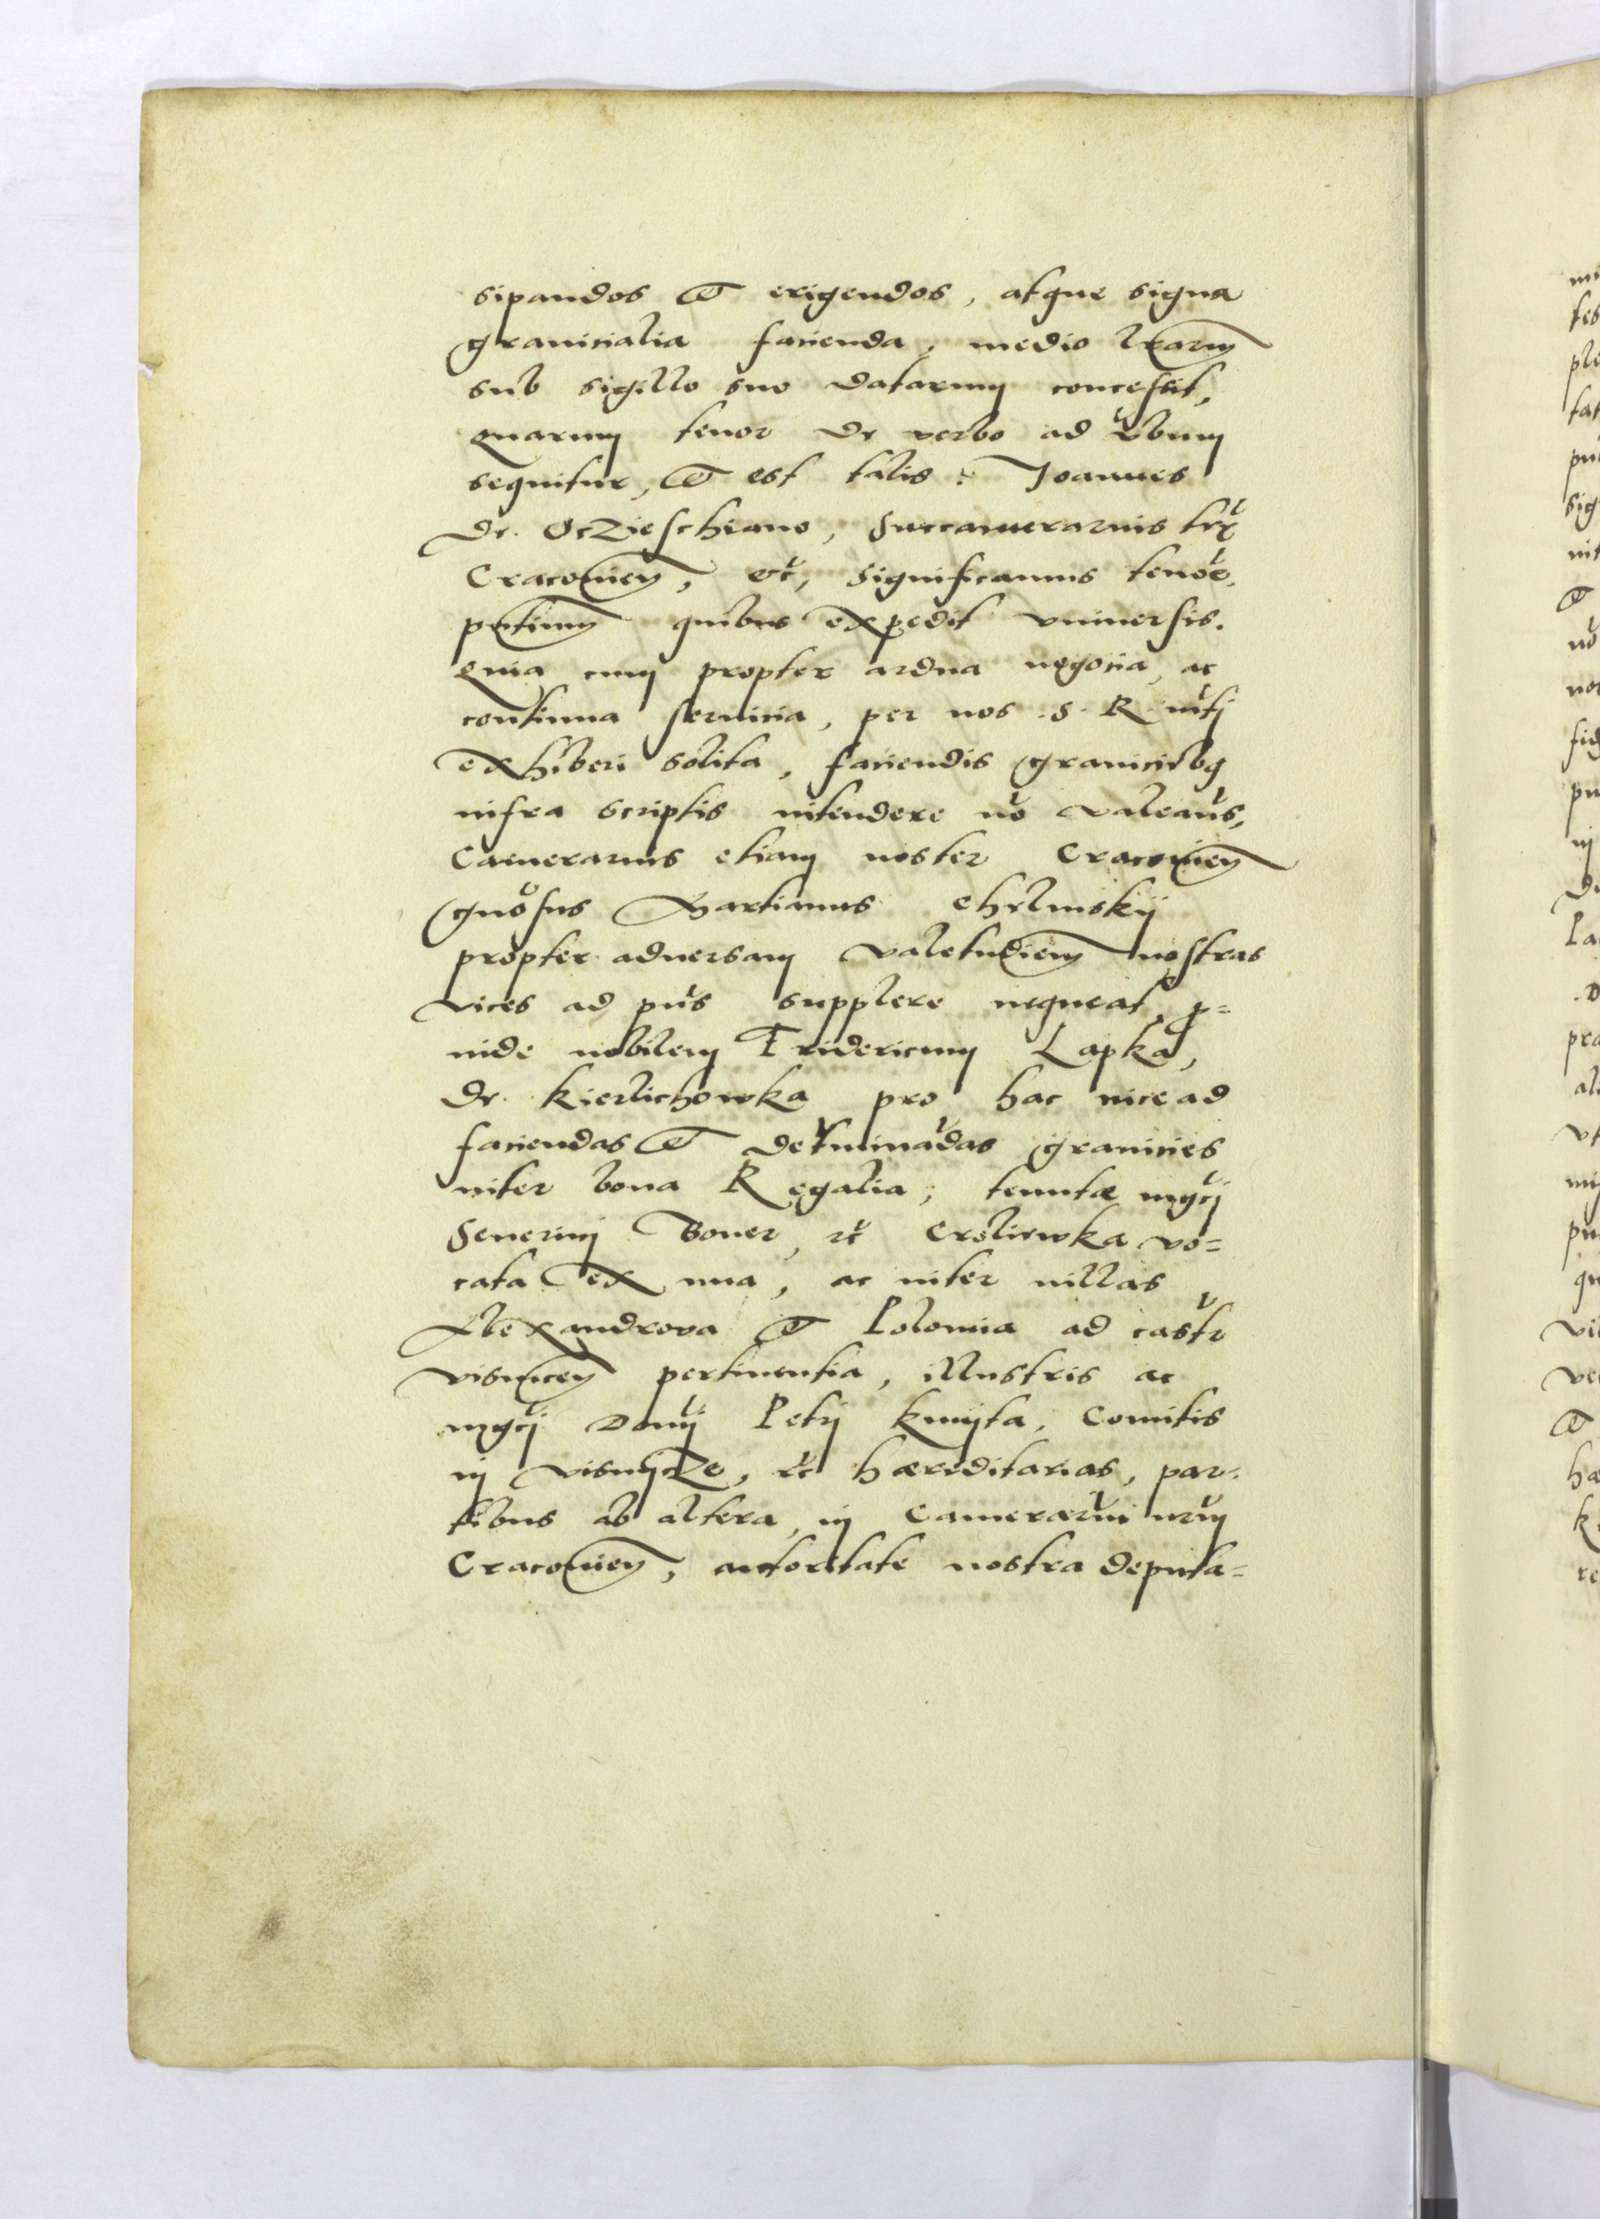 sipandos et erigendos, atque signa
granicialia facienda, medio lrarum
sub sigillo suo datarum concessit,
quarum tenor de verbo ad vbum
sequitur, et est talis: Joannes
de Oczieschicano, Succamerarius trae
Cracovien, etc, significamus tenore
pntium quibus expedit universis.
Quia cum propter ardua negocia, ac
continua servicia, per nos S. R. mti
exhiberi solita, faciendis granicibus
infra scriptis intendere no valeams,
Camerarius etiam noster Cracovien
gnosus Martianus Chelmskij
propter adversam valetudiem nostras
vices ad pns supplere nequeat, pro=
inde nobilem Fridericum Lapka,
de Kierlichowka pro hac vice ad
faciendas et determinadas granicies
inter bona Regalia, tenutae mgci
Severini Boner, etc Crolewka vo=
cata ex una, ac inter villas
Alexandrova et Polomia ad castr
visnicen pertinentia, illustris ac
mgci Domi Petri Kmijta, Comitis
in Visnijcze, etc haereditarias, par=
tibus ab altera, in Camerarium nrum
Cracovien, autoritate nostra deputa=